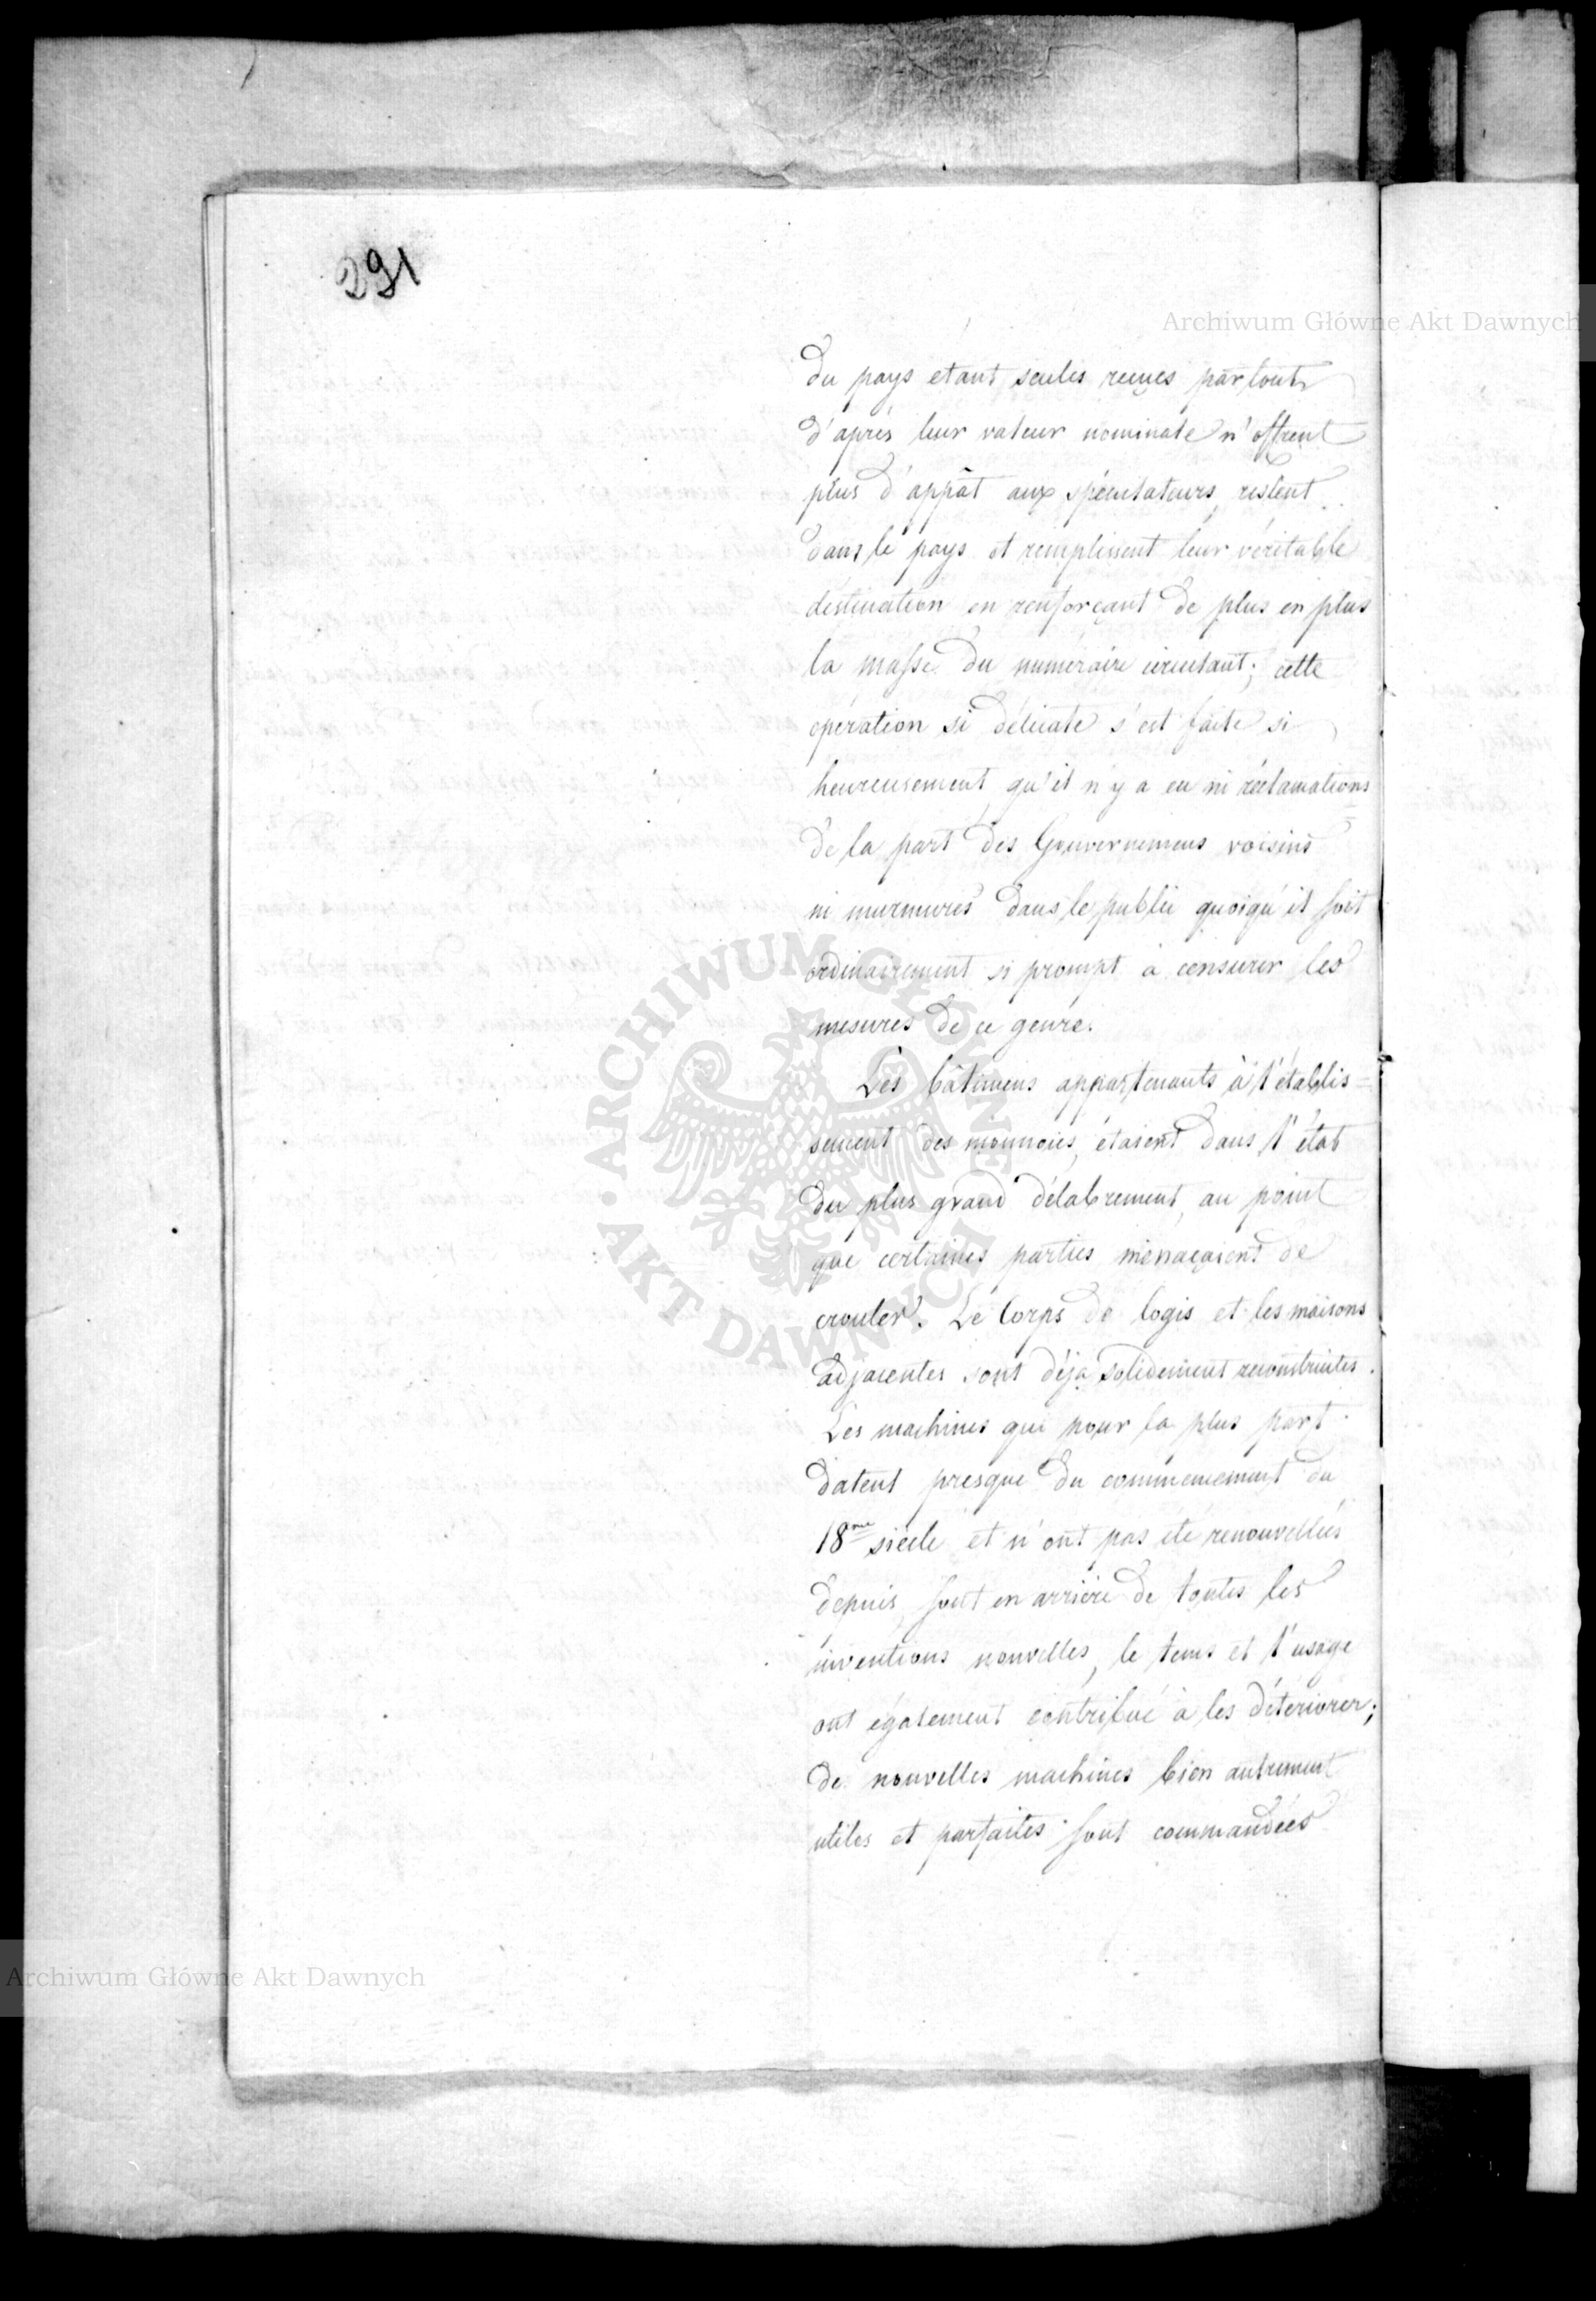 291
Archiwum Główne Akt Dawnych
du pays etant seules reçues partout
d'après leur valeur nominale n'offrent
plus d'appât aux spéculateurs, restent
dans le pays et remplissent leur véritable
destination en renforçant de plus en plus
la masse du numéraire circulant; cette
opération si délicate s'est faite si
heureusement, qu'il n'y a eu ni réclamations
de la part des Gouvernemens voisins
ni murmures dans le public quoiqu'il soit
ordinairement si prompt à censurer les
mesures de ce genre.
Les bâtimens appartenants à l'établis=
sement des monnoies, étaient dans l'état
du plus grand délabrement, au point
que certaines parties menaçaient de
crouler. Le Corps de logis et les maisons
adjacentes sont déja solidement reconstruites.
Les machines qui pour la plus part
datent presque du commencement du
18me siècle et n'ont pas été renouvellées
depuis, sont en arrière de toutes les
inventions nouvelles, le tems et l'usage
ont également contribué à les déteriorer;
de nouvelles machines bien autrement
utiles et parfaites sont commandées
ARCHIWUM GŁÓWNE AKT DAWNYCH
Archiwum Główne Akt Dawnych